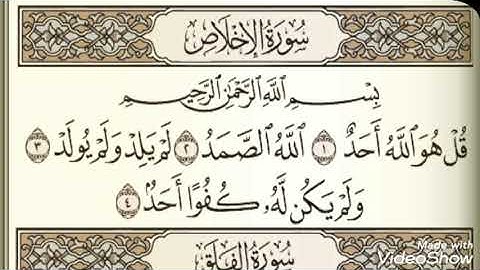 سُورَةُ الإِخْلَاصِ
بِسْمِ اللَّهِ الرَّحْمَٰنِ الرَّحِيمِ
قُلْ هُوَ اللَّهُ أَحَدٌ ١ اللَّهُ الصَّمَدُ ٢ لَمْ يَلِدْ وَلَمْ يُولَدْ ٣
وَلَمْ يَكُن لَّهُۥ كُفُوًا أَحَدٌۢ ٤
سُورَةُ الفَلَقِ
Made with
VideoShow